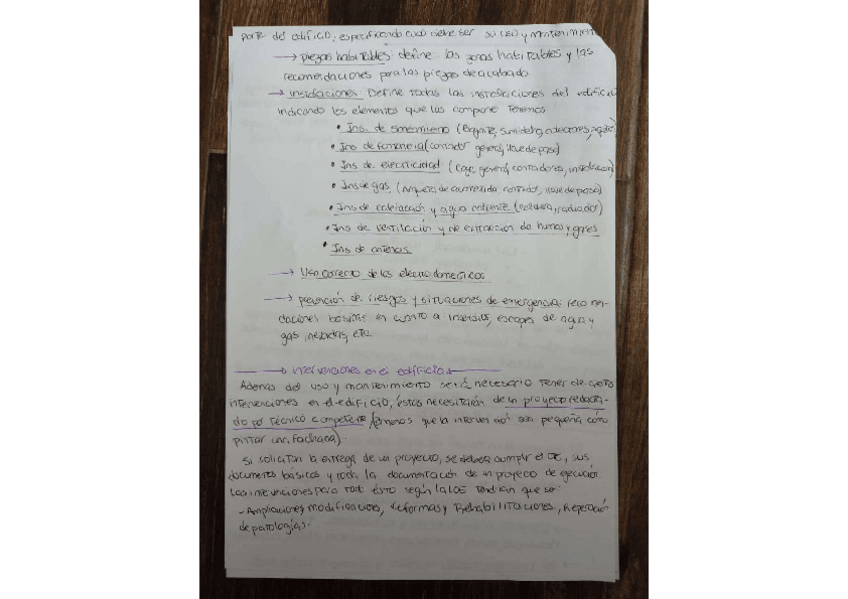 parte del edificio, especificando cual debe ser su uso y mantenimiento
→ piezas habitables: define las zonas habitables y las
recomendaciones para las piezas de acabado
→ instalaciones: Define todas las instalaciones del edificio
indicando los elementos que las compone. Tenemos
• Ins. de saneamiento (Bajante, sumidero, colectores,
• Ins de fontanería (contador general, llave de paso)
• Ins de electricidad (caja general, contadores, instalación)
• Ins de gas (arqueta de acometida, contador, llave de paso)
• Ins de calefacción y agua caliente (caldera, radiador)
• Ins de ventilación y de extracción de humos y gases
• Ins de antenas
→ Uso correcto de los electrodomesticos
→ prevención de riesgos y situaciones de emergencia: recomen-
daciones básicas en cuanto a incendios, escapes de agua y
gas, nevadas, etc.
→ Intervenciones en el edificio
Ademas del uso y mantenimiento será necesario tener de ciertas
intervenciones en el edificio, estas necesitarán de un proyecto redacta-
do por técnico competente (a menos que la intervención sea pequeña como
pintar una fachada).
Si solicitan la entrega de un proyecto, se deberá cumplir el CTE, sus
documentos básicos y toda la documentación de un proyecto de ejecución.
Las intervenciones para todo ésto según la LOE tendrían que ser:
- Ampliaciones, modificaciones, reformas y Rehabilitaciones, Reparación
de patologías.